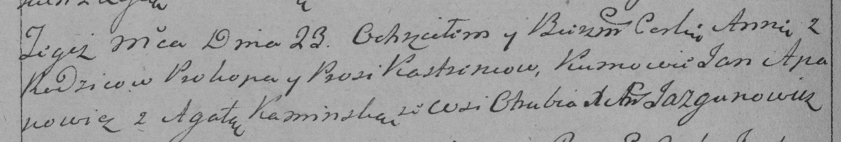 Tegoż Mca Dnia 23. Ochrzciłem y Bierzm Corkę Annę z
Rodzicow Prokopa y Prosi Kastrincow, Kumowie Jan Apa
nowicz z Agatą Kaminską ze Wsi Chubia X An Jazgunowicz